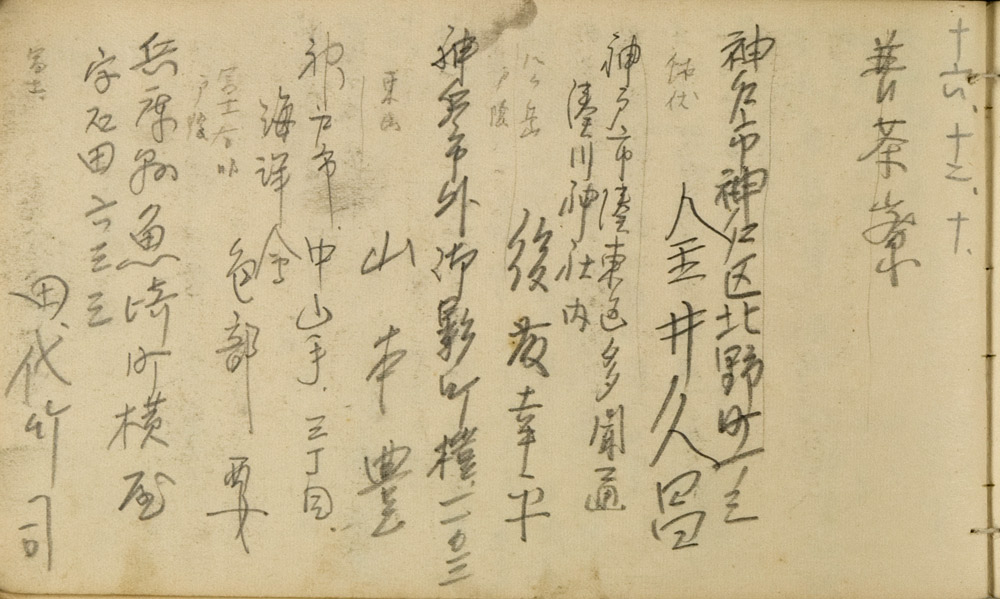 十六、十二、十、
普茶寮
神戸市神戸区北野町一ノ三
金井久昌
神戸市湊東区多聞通
湊川神社内
八ヶ岳
戸隠
後変幸平
神戸市外御影町樸一一〇三
乗鞍
山本豊
神戸市中山手三丁目
海洋会
戸隠
色部要
兵庫県魚崎町横屋
字石田六三三
富士
田代竹司